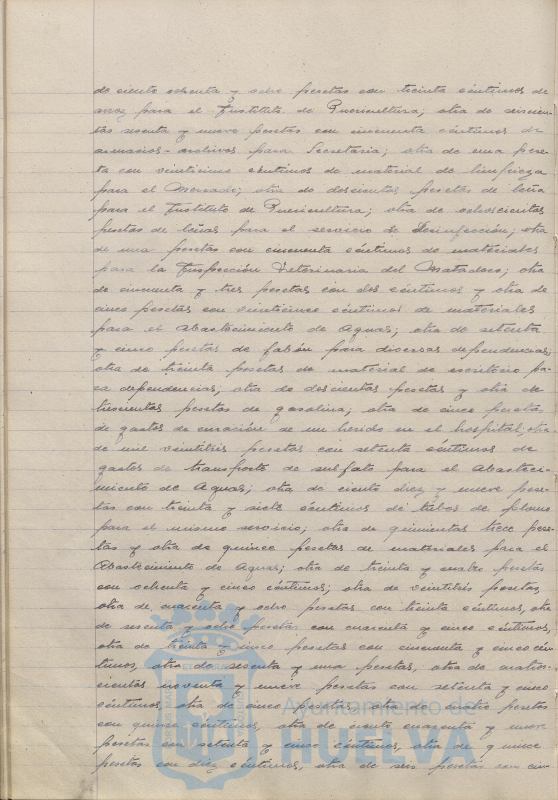 de ciento ochenta y ocho pesetas con treinta céntimos de
arroz para el Instituto de Puericultura; otra de seiscien-
tas sesenta y nueve pesetas con cincuenta céntimos de
armarios-archivos para Secretaría; otra de una pese-
ta con veinticinco céntimos de material de limpieza
para el Mercado; otra de doscientas pesetas de leña
para el Instituto de Puericultura; otra de ochocientas
pesetas de leñas para el servicio de Desinfección; otra
de una pesetas con cincuenta céntimos de materiales
para la Inspección Veterinaria del Matadero; otra
de cincuenta y tres pesetas con dos céntimos y otra de
cinco pesetas con veinticinco céntimos de materiales
para el Abastecimiento de Aguas; otra de setenta
y cinco pesetas de jabón para diversas dependencias;
otra de treinta pesetas de material de escritorio pa-
ra dependencias; otra de doscientas pesetas y otra de
trescientas pesetas de gasolina; otra de cinco pesetas
de gastos de curación de un herido en el hospital; otra
de mil veintitrés pesetas con setenta céntimos de
gastos de transporte de sulfato para el Abasteci-
miento de Aguas; otra de ciento diez y nueve pese-
tas con treinta y siete céntimos de tubos de plomo
para el mismo servicio; otra de quinientas trece pese-
tas y otra de quince pesetas de materiales para el
Abastecimiento de Aguas; otra de treinta y cuatro pesetas
con ochenta y cinco céntimos; otra de veintitrés pesetas,
otra de cuarenta y ocho pesetas con treinta céntimos, otra
de sesenta y ocho pesetas con cuarenta y cinco céntimos,
otra de treinta y cinco pesetas con cincuenta y cinco cén-
timos, otra de sesenta y una pesetas, otra de cuatro-
cientas noventa y nueve pesetas con setenta y cinco
céntimos, otra de cinco pesetas, otra de cuatro pesetas
con quince céntimos, otra de ciento cuarenta y nueve
pesetas con setenta y cinco céntimos, otra de quince
pesetas con diez céntimos, otra de seis pesetas con cin-
Ayuntamiento de
HUELVA